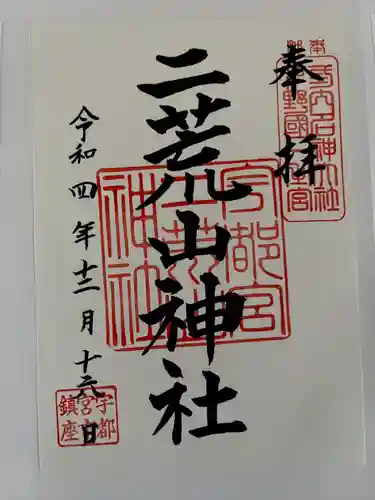 奉拝
二荒山神社
令和四年十二月十六日
宇都宮
二荒山
神社
宇都宮
鎮座